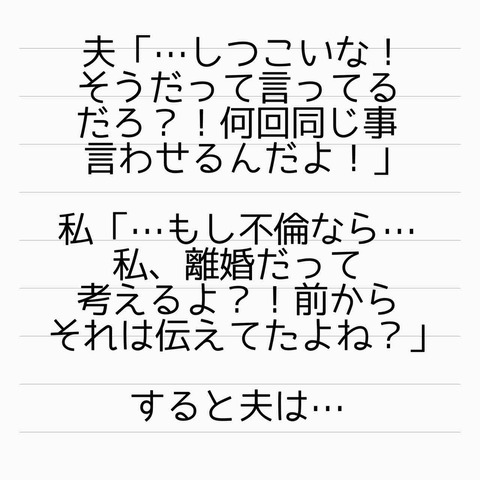 夫「…しつこいな！
そうだって言ってる
だろ？！何回同じ事
言わせるんだよ！」
私「…もし不倫なら…
私、離婚だって
考えるよ？！前から
それは伝えてたよね？」
すると夫は…